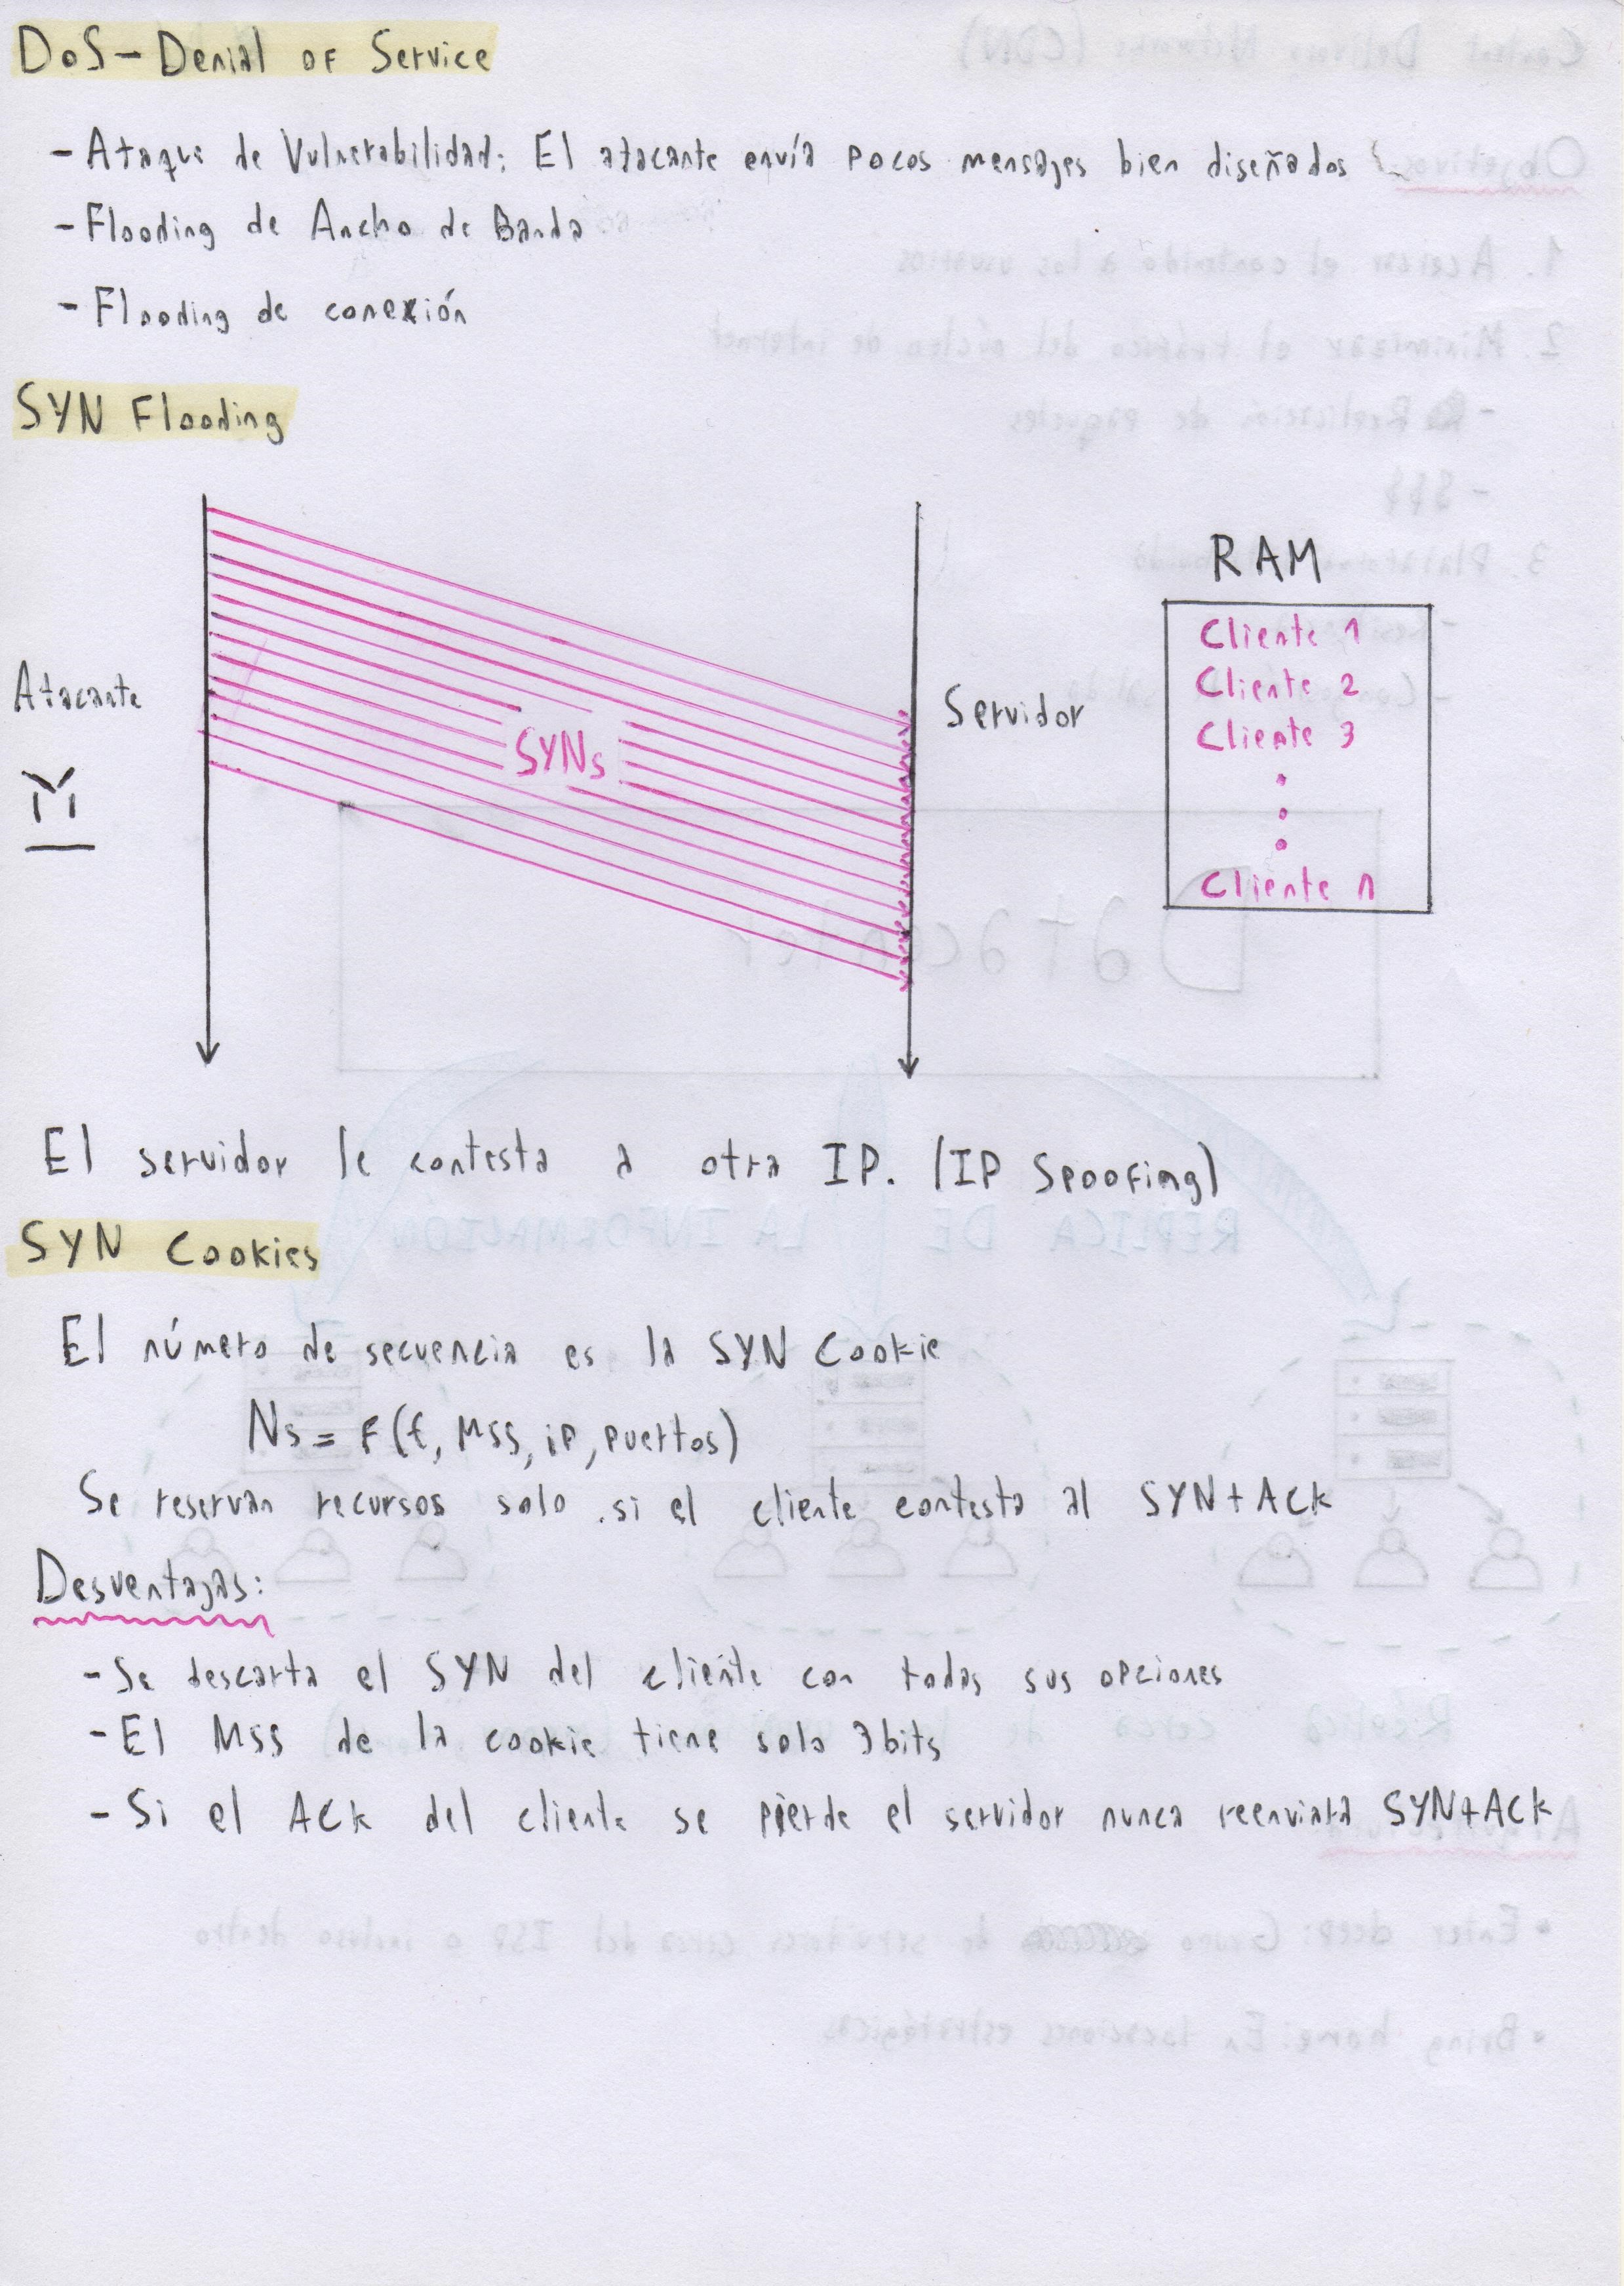 DoS - Denial of Service
- Ataque de Vulnerabilidad: El atacante envía pocos mensajes bien diseñados
- Flooding de Ancho de Banda
- Flooding de conexión
SYN Flooding
RAM
Cliente 1
Cliente 2
Cliente 3
Cliente n
Atacante
SYNs
Servidor
El servidor le contesta a otra IP. (IP Spoofing)
SYN Cookies
El número de secuencia es la SYN Cookie
Ns = F(t, MSS, iP, puertos)
Se reservan recursos solo si el cliente contesta al SYN+ACK
Desventajas:
- Se descarta el SYN del cliente con todas sus opciones
- El MSS de la cookie tiene solo 3bits
- Si el ACK del cliente se pierde el servidor nunca reenviará SYN+ACK